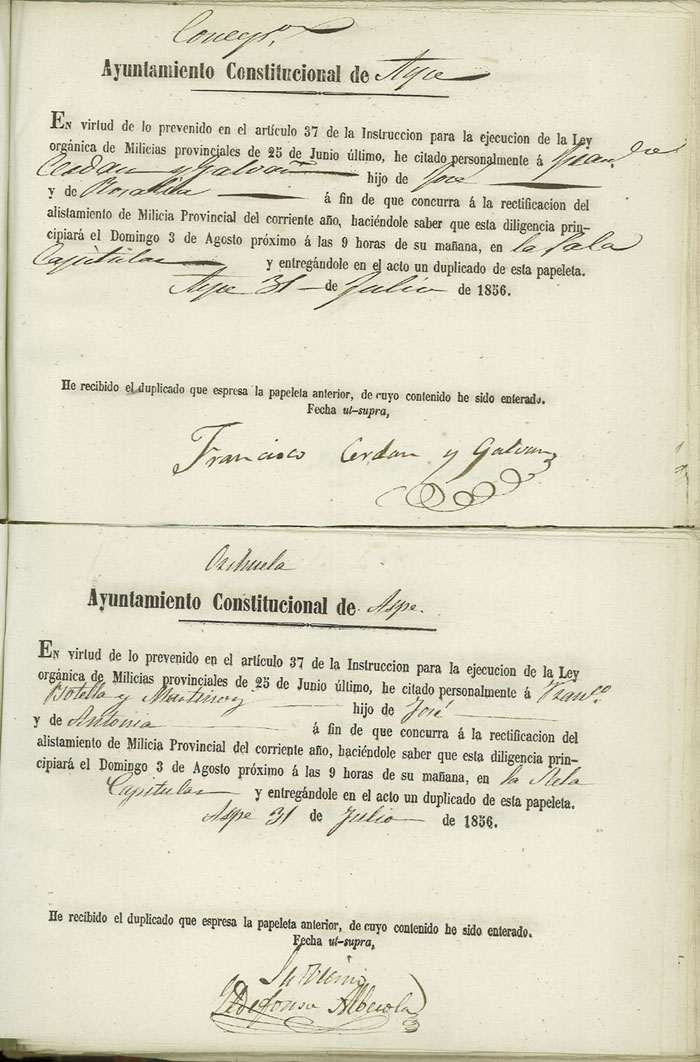 Concepn.
Ayuntamiento Constitucional de Aspe
En virtud de lo prevenido en el artículo 37 de la Instruccion para la ejecucion de la Ley
orgánica de Milicias provinciales de 25 de Junio último, he citado personalmente á Fran.co
Cerdan y Galvañ hijo de José
y de Rosalia á fin de que concurra á la rectificacion del
alistamiento de Milicia Provincial del corriente año, haciéndole saber que esta diligencia prin-
cipiará el Domingo 3 de Agosto próximo á las 9 horas de su mañana, en la Sala
Capitular y entregándole en el acto un duplicado de esta papeleta.
Aspe 31 de Julio de 1856.
He recibido el duplicado que espresa la papeleta anterior, de cuyo contenido he sido enterado.
Fecha ut-supra,
Francisco Cerdan y Galvan
Orihuela
Ayuntamiento Constitucional de Aspe.
En virtud de lo prevenido en el artículo 37 de la Instruccion para la ejecucion de la Ley
orgánica de Milicias provinciales de 25 de Junio último, he citado personalmente á Franco.
Botella y Martinez hijo de José
y de Antonia á fin de que concurra á la rectificacion del
alistamiento de Milicia Provincial del corriente año, haciéndole saber que esta diligencia prin-
cipiará el Domingo 3 de Agosto próximo á las 9 horas de su mañana, en la Sala
Capitular y entregándole en el acto un duplicado de esta papeleta.
Aspe 31 de Julio de 1856.
He recibido el duplicado que espresa la papeleta anterior, de cuyo contenido he sido enterado.
Fecha ut-supra,
Ildefonso Albeola